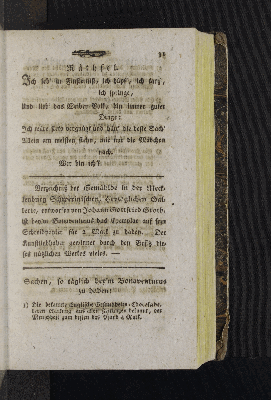 Räthsel.
Ich leb' in Finsterniß, ich hüpf', ich
ich springe,
Und bin das Weiber-Volk, bin immer guter
Dinge:
Ich stets vergnügt und die beste
Allein am meisten mir die Mädchen
nach.
Wer bin ich?
Verzeichniß der Gemählde in der Meck-
lenburg Schwerinschen, Herzoglichen Gal-
lerie, entworfen von Johann Gottfried Groth,
ist beym Bonaventurus das Exemplar auf fein
Schreibpapier für 2 Mark zu haben. Der
Kunstliebhaber gewinnet durch den Besitz die-
ses nützlichen Werkes vieles.
Sachen, so täglich bey'm Bonaventurus
zu haben:
1) Die bekannte Englische Gesundheits-Chocolade,
deren Nutzung aus allen bekannt, der
zum besten das Pfund 4 Mark.